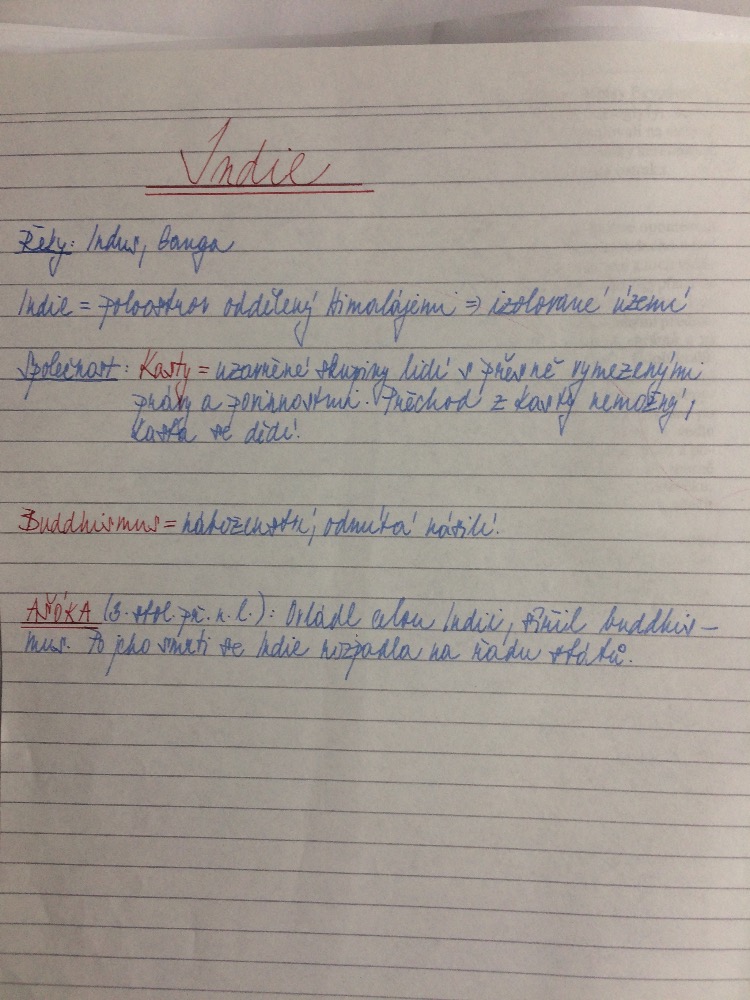 Indie
Řeky: Indus, Ganga
Indie = poloostrov oddělený Himalájemi ⇒ izolované území
Společnost: Kasty = uzavřené skupiny lidí s přesně vymezenými
právy a povinnostmi. Přechod z kasty nemožný,
kasta se dědí.
Buddhismus = náboženství, odmítá násilí.
AŠÓKA (3. stol. př. n. l.): Ovládl celou Indii, šířil buddhis-
mus. Po jeho smrti se Indie rozpadla na řadu států.